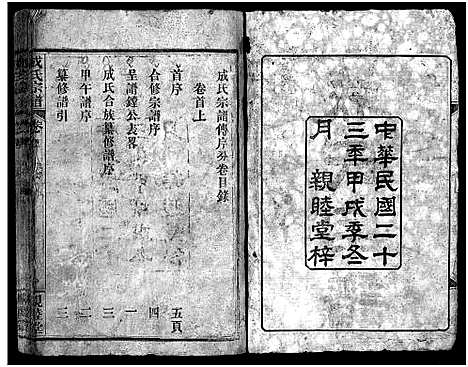 中華民國二十
三年甲戌季冬
月親睦堂梓
成氏宗譜傳序分卷目錄
卷首上
首序 五頁
合修宗譜序 四
呈請鐘公表畧 一
成氏合族纂修譜序 三
甲午譜序 二
纂修譜引 三
成氏宗譜